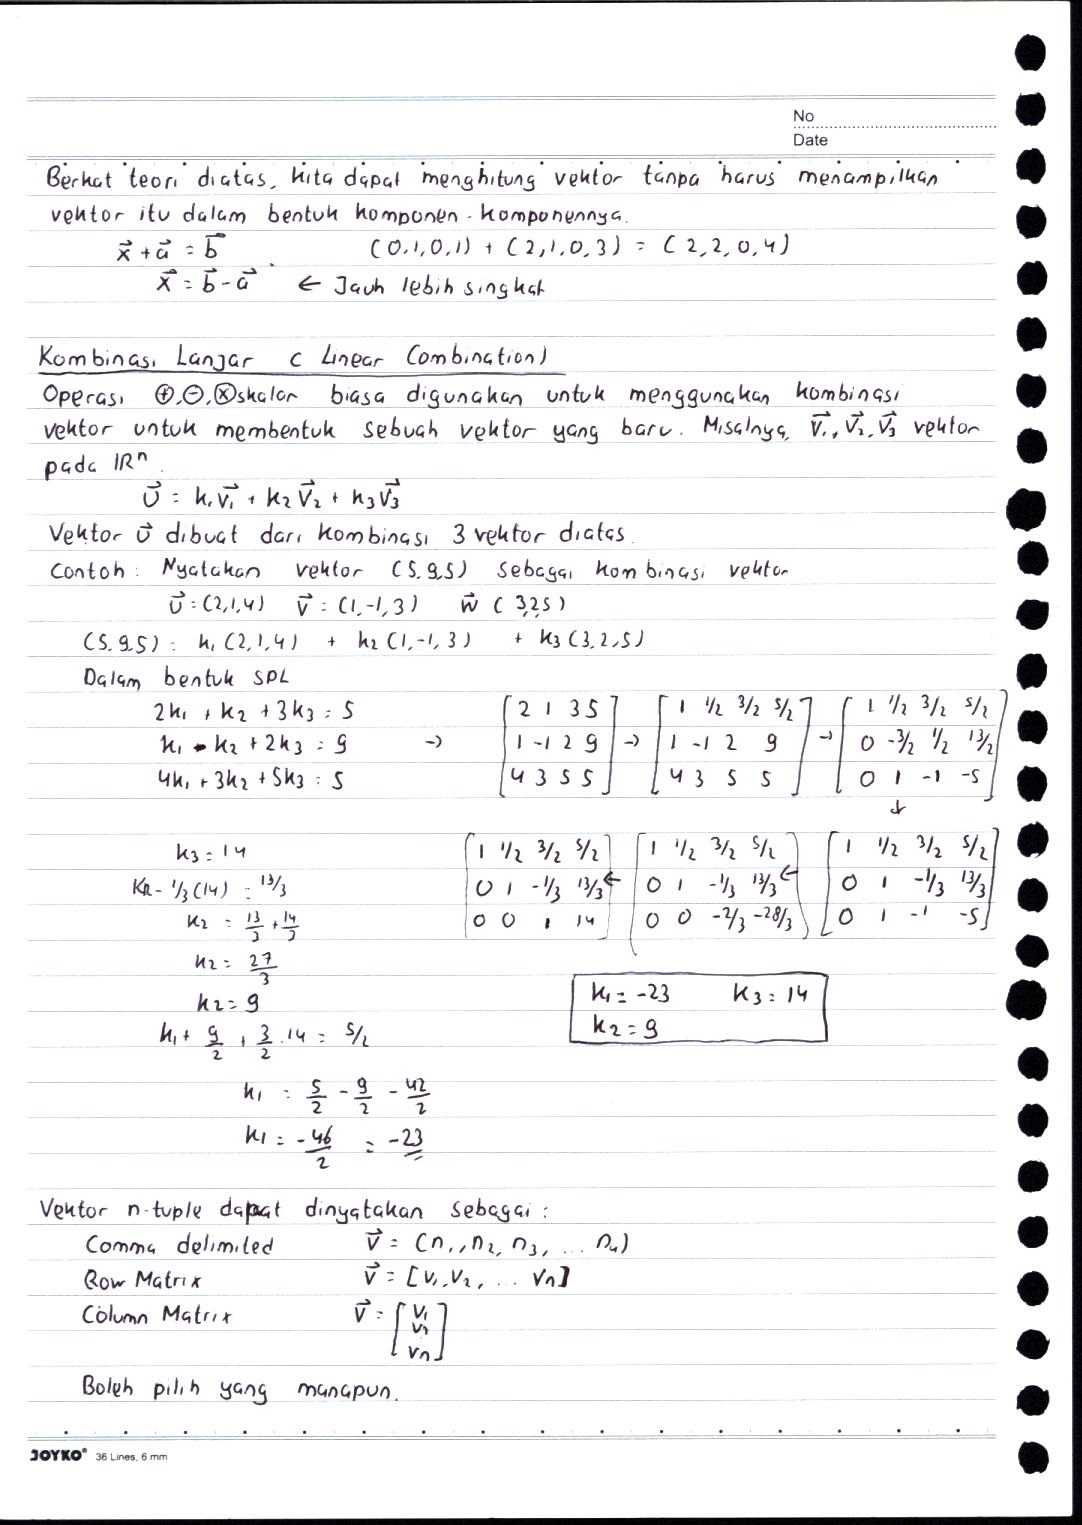 No
Date
Berkat teori diatas, kita dapat menghitung vektor tanpa harus menampilkan
vektor itu dalam bentuk komponen-komponennya.
x⃗ + a⃗ = b⃗ (0,1,0,1) + (2,1,0,3) = (2,2,0,4)
x⃗ = b⃗ - a⃗ ← Jauh lebih singkat
Kombinasi Lanjar ( Linear Combination)
Operasi ⊕,⊖,⊗skalar biasa digunakan untuk menggunakan kombinasi
vektor untuk membentuk sebuah vektor yang baru. Misalnya, v⃗₁, v⃗₂, v⃗₃ vektor
pada ℝⁿ.
u⃗ = k₁v⃗₁ + k₂v⃗₂ + k₃v⃗₃
Vektor u⃗ dibuat dari kombinasi 3 vektor diatas.
Contoh: Nyatakan vektor (5,9,5) sebagai kombinasi vektor
u⃗ = (2,1,4) v⃗ = (1,-1,3) w⃗ (3,2,5)
(5,9,5) = k₁(2,1,4) + k₂(1,-1,3) + k₃(3,2,5)
Dalam bentuk SPL
2k₁ + k₂ + 3k₃ = 5 [2 1 3 5] [1 1/2 3/2 5/2] [1 1/2 3/2 5/2]
k₁ - k₂ + 2k₃ = 9 → [1 -1 2 9] → [1 -1 2 9] → [0 -3/2 1/2 13/2]
4k₁ + 3k₂ + 5k₃ = 5 [4 3 5 5] [4 3 5 5] [0 1 -1 -5]
↓
k₃ = 14 [1 1/2 3/2 5/2] [1 1/2 3/2 5/2] [1 1/2 3/2 5/2]
k₂ - 1/3(14) = 13/3 [0 1 -1/3 13/3] ← [0 1 -1/3 13/3] ← [0 1 -1/3 13/3]
k₂ = 13/3 + 14/3 [0 0 1 14] [0 0 -2/3 -28/3] [0 1 -1 -5]
k₂ = 27/3
k₂ = 9
k₁ = -23 k₃ = 14
k₂ = 9
k₁ + 9/2 + 3/2 . 14 = 5/2
k₁ = 5/2 - 9/2 - 42/2
k₁ = -46/2 = -23
Vektor n-tuple dapat dinyatakan sebagai :
Comma delimited v⃗ = (n₁, n₂, n₃, ... n₄)
Row Matrix v⃗ = [v₁, v₂, ... vn]
Column Matrix v⃗ = [v₁
v₂
vn]
Boleh pilih yang manapun.
JOYKO® 36 Lines, 6 mm